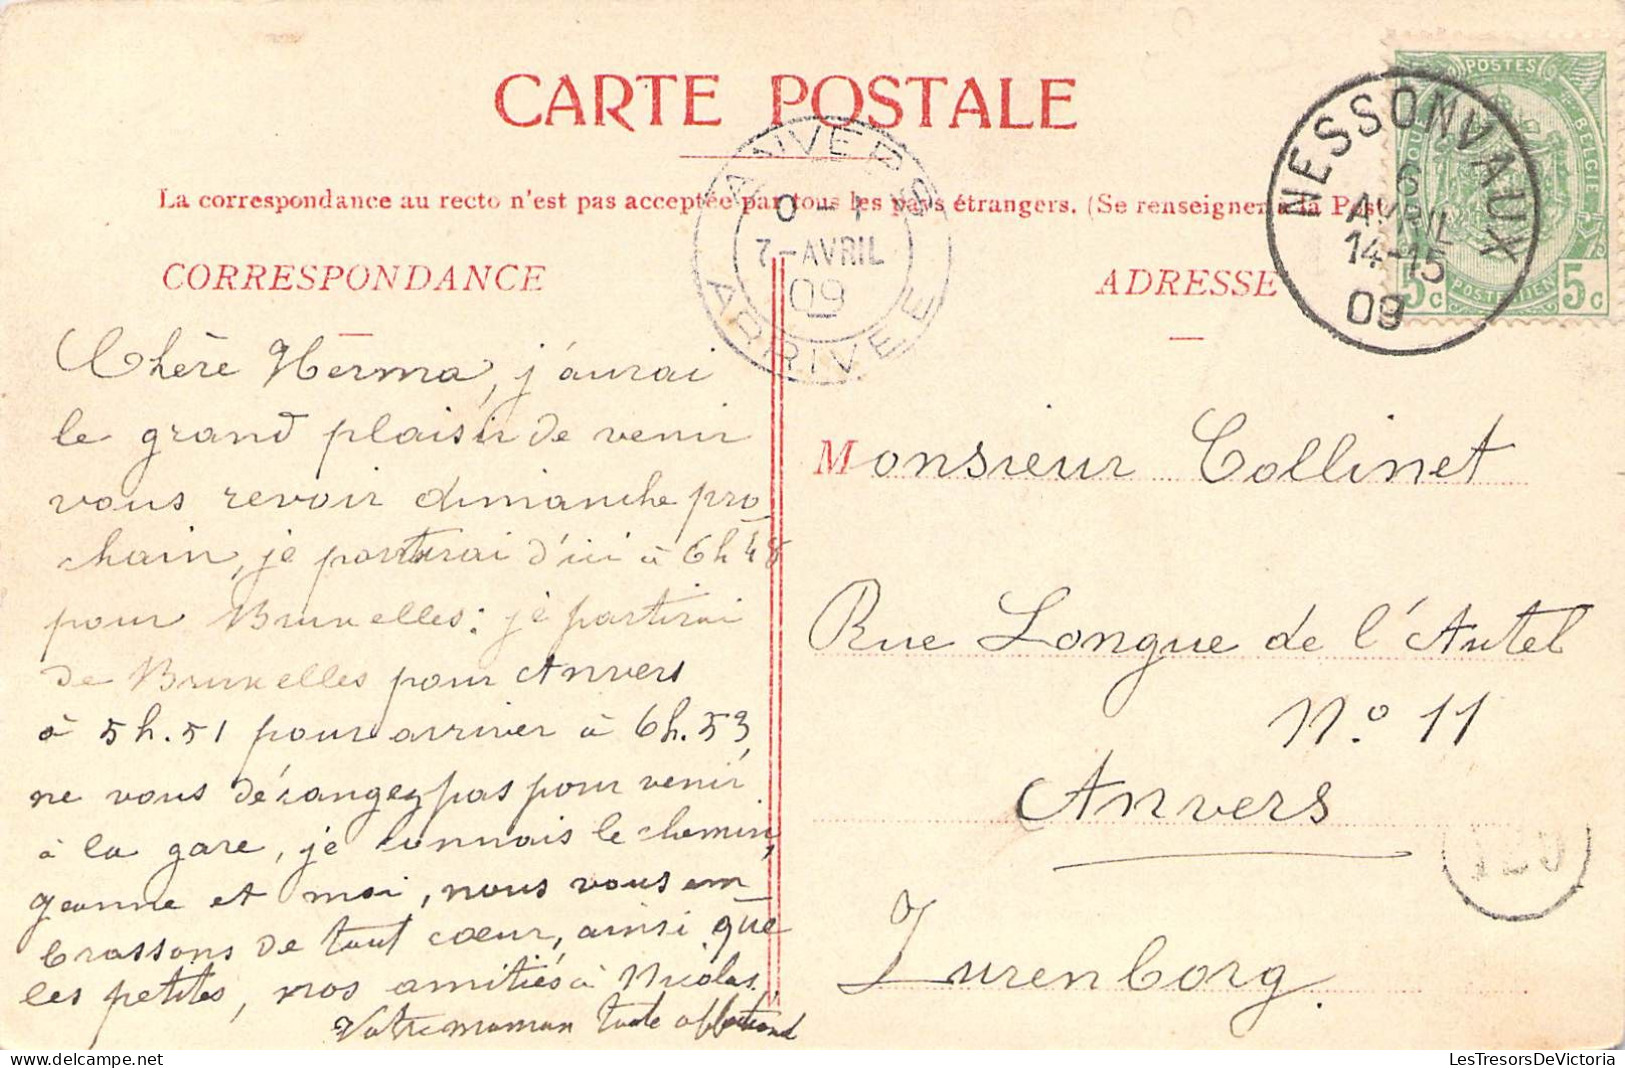 CARTE POSTALE
La correspondance au recto n'est pas acceptée par tous les pays étrangers. (Se renseigner à la Post
CORRESPONDANCE
Chère Herma, j'aurai
le grand plaisir de venir
vous revoir dimanche pro
chain, je partirai d'ici à 6h48
pour Bruxelles: je partirai
de Bruxelles pour Anvers
à 5h.51 pour arriver à 6h.53,
ne vous dérangez pas pour venir
à la gare, je connais le chemin,
Jeanne et moi, nous vous em
brassons de tout cœur, ainsi que
les petites, nos amitiés à Nicolas.
Votre maman toute affectionnée
ANVERS
0-1
7-AVRIL
09
ARRIVEE
ADRESSE
Monsieur Collinet
Rue Longue de l'Autel
N.º 11
Anvers
Zurenborg.
NESSONVAUX
6
AVRIL
14-15
09
POSTES
BELGIE
POSTERIJEN
5c
5c
LesTresorsDeVictoria